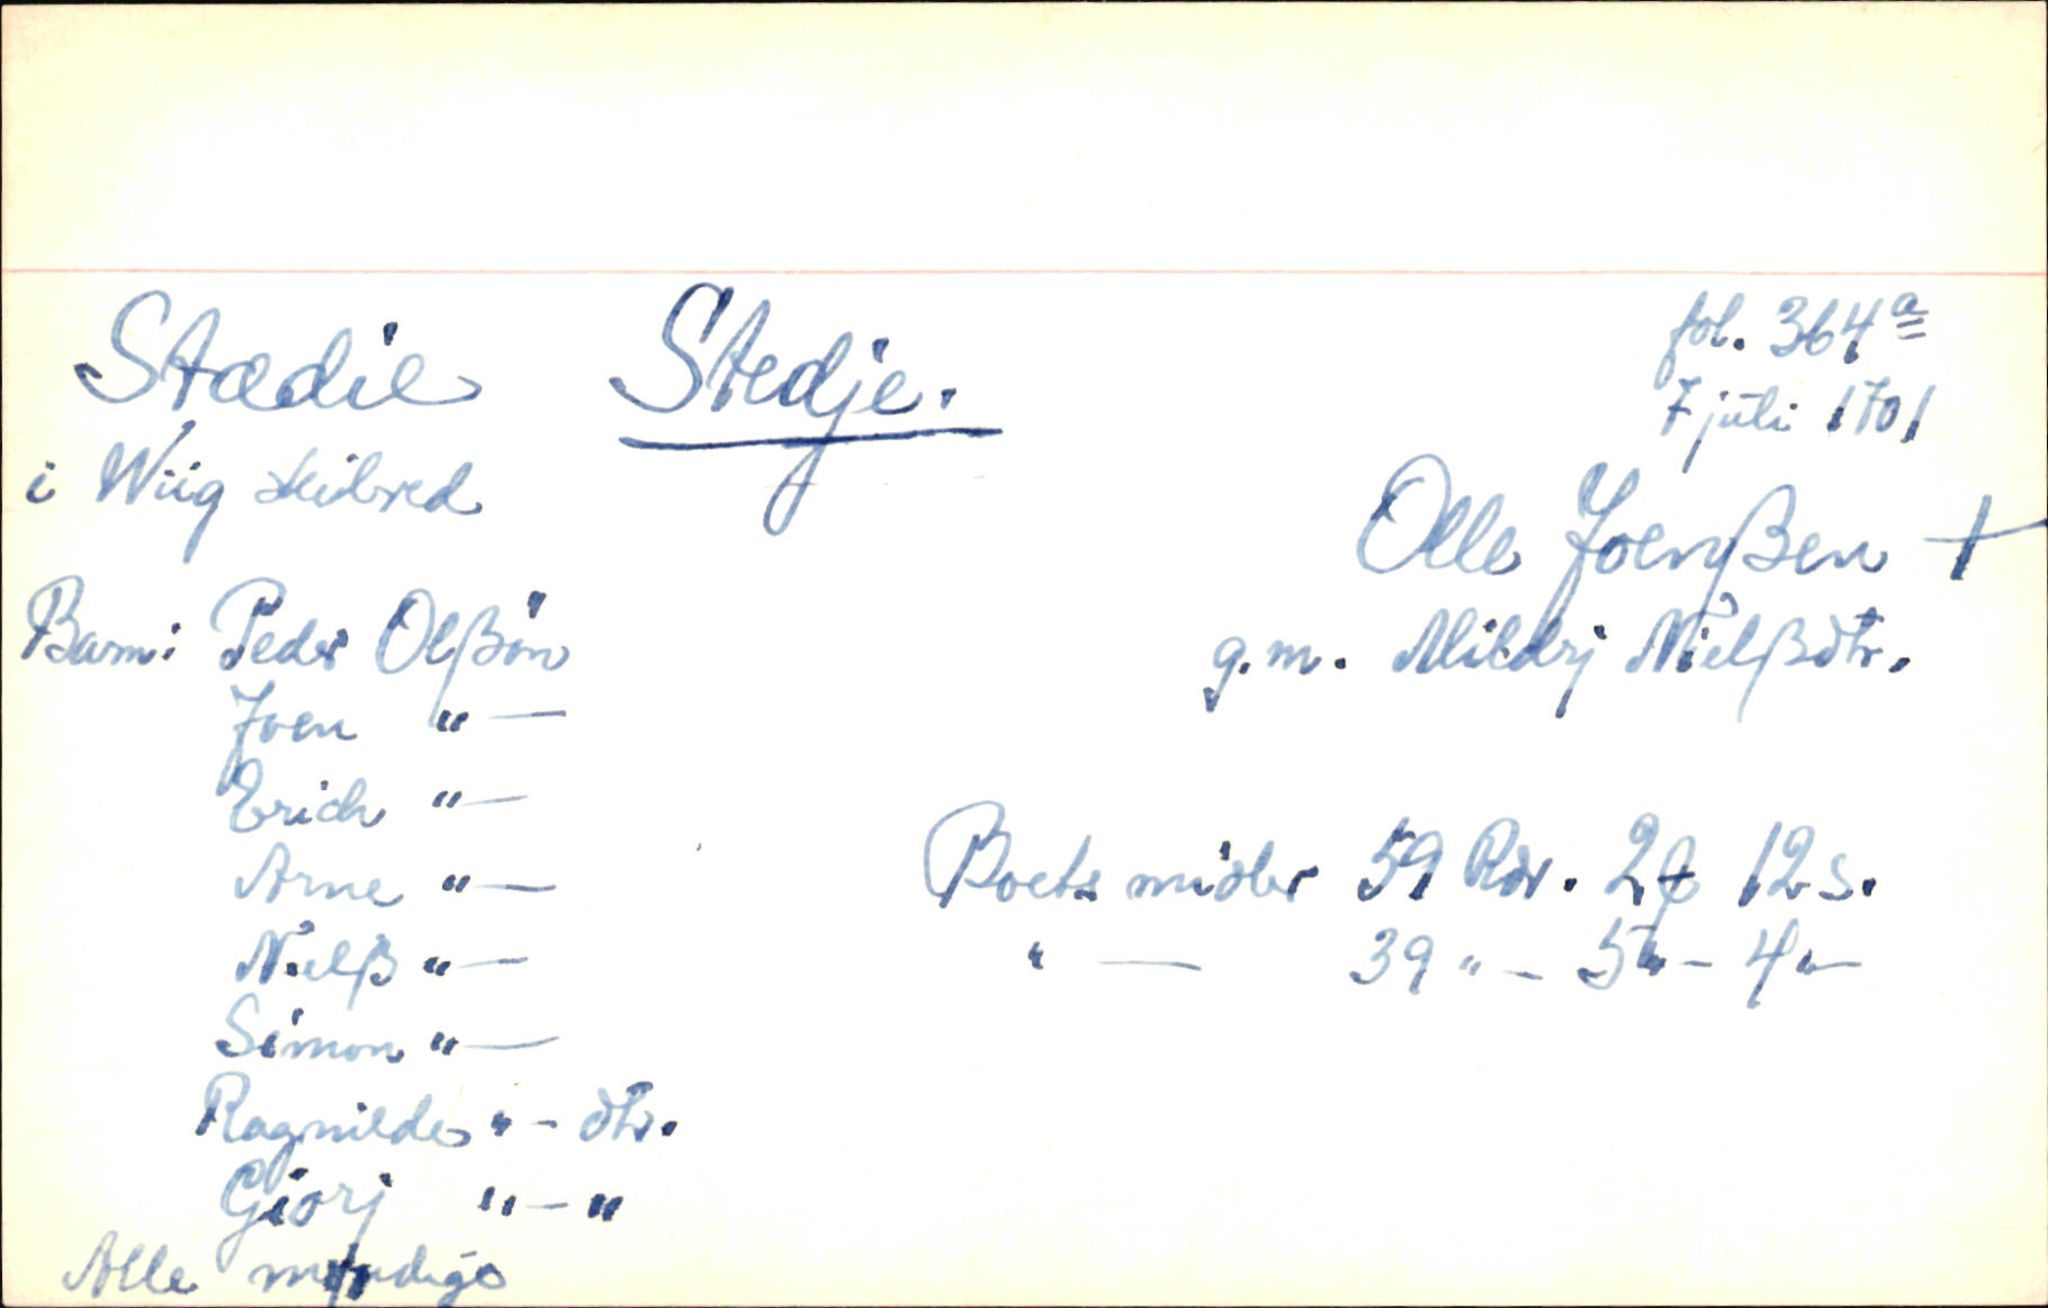 Stædie Stedje. fol. 364a
7 juli 1701
i Wiig skibred
Olle Joenßen +
g.m. Mildrj Nielßdtr.
Barn: Peder Olßøn
Joen " —
Erich " —
Arne " —
Nielß " —
Simon " —
Ragnilde " - dtr.
Giørj " - "
Alle myndige
Boets midler 59 Rdr. 2 ₰ 12 s.
" — 39 " - 5 " - 4 " —